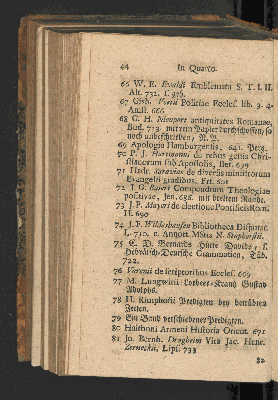 44 In Quarto.
66 W. E. Emblemata S. T. I. II.
Alt. 732. T. geb.
67 Gisb. Voetii Politiae Eccles. lib. 3. 4.
Amst. 666
68 G. H. Nieuport antiquitates Romanae,
Bud. 713. mit rein Papier durchschossen, so
noch unbeschrieben
69 Apologia Hamburgensis, 641. Perg.
70 P. J. Hartmanni de rebus gestis Christianorum
sub Apostolis, Ber. 699
71 Hadr. Saraviae de diversis ministrorum
Evangelii gradibus, Frf. 691
72 J. G. Baieri Compendium Theologiae
positivae, Jen. 686. mit breitem Rande.
73 J. F. Mayeri de electione Pontificis Rom.
H. 690
74 J. P. Bibliotheca Disputat.
L. 710. c. Annot. MStis N.
75 C. D. Bernards Hütte Davids, s.
Hebräisch-Deutsche Grammatica, Tüb.
722.
76 de scriptoribus Eccles. 669
77 M. Lungwitii Lorbeer-Krantz Gustav
Adolphs.
78 H. Kimphofii Predigten bey betrübten
Zeiten.
79 Ein Band verschiedener Predigten.
80 Haithoni Armeni Historia Orient. 671
81 Jo. Bernh. Vita Jac. Henr.
Zerneckii, Lips. 733
82